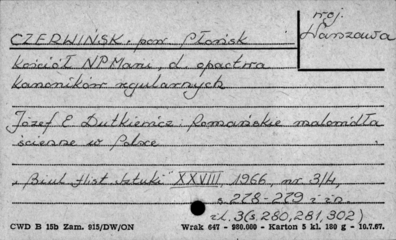 woj.
Warszawa
CZERWIŃSK. pow. Płońsk
kościół NPMarii, d. opactwa
kanoników regularnych
Józef E Dutkiewicz: Romańskie malowidła
ścienne w Polsce
„Biul. Hist. Sztuki" XXVIII, 1966, nr. 3/4,
s. 278-279 i n.
il. 3 (s. 280, 281, 302)
CWD B 15b Zam. 915/DW/ON Wrak 647 - 980.000 - Karton 5 kl. 180 g - 10.7.67.